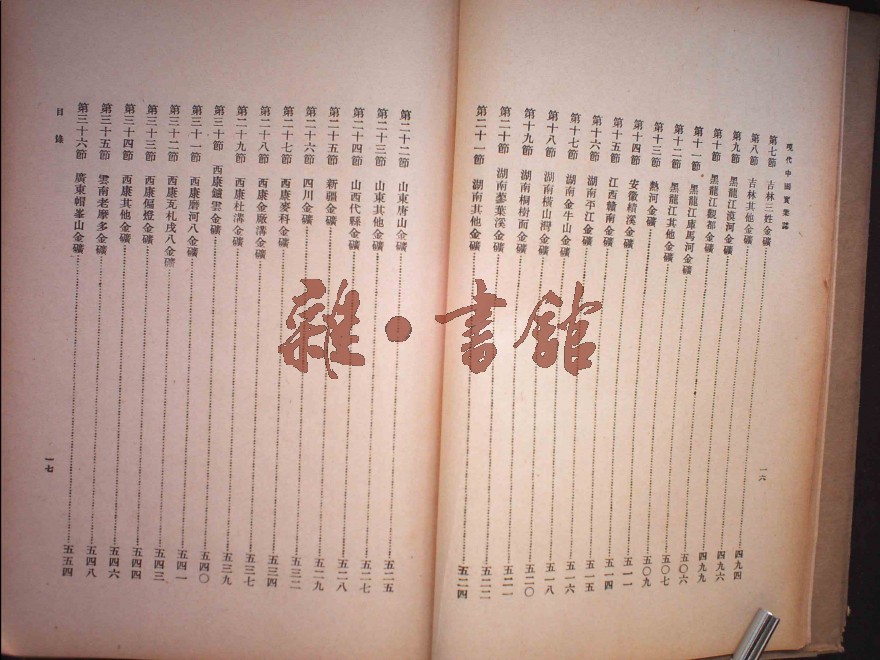 現代中國實業誌
第七節 吉林三姓金礦 四九四
第八節 吉林其他金礦 四九六
第九節 黑龍江漠河金礦 四九九
第十節 黑龍江觀都金礦 五〇六
第十一節 黑龍江庫馬河金礦 五〇七
第十二節 黑龍江其他金礦 五〇九
第十三節 熱河金礦 五一一
第十四節 安徽績溪金礦 五一四
第十五節 江西贛南金礦 五一五
第十六節 湖南平江金礦 五一六
第十七節 湖南金牛山金礦 五一八
第十八節 湖南橫山灣金礦 五二〇
第十九節 湖南桐樹面金礦 五二一
第二十節 湖南蓼葉溪金礦 五二二
第二十一節 湖南其他金礦 五二四
一六
第二十二節 山東唐山金礦 五二五
第二十三節 山東其他金礦 五二七
第二十四節 山西代縣金礦 五二八
第二十五節 新疆金礦 五二九
第二十六節 四川金礦 五三二
第二十七節 西康麥科金礦 五三四
第二十八節 西康金廠溝金礦 五三七
第二十九節 西康杜溝金礦 五三九
第三十節 西康鑪雲金礦 五四〇
第三十一節 西康磨河八金礦 五四一
第三十二節 西康瓦札戌八金礦 五四三
第三十三節 西康偏燈金礦 五四四
第三十四節 西康其他金礦 五四六
第三十五節 雲南老摩多金礦 五四八
第三十六節 廣東帽峯山金礦 五五四
目錄
一七
雜·書館